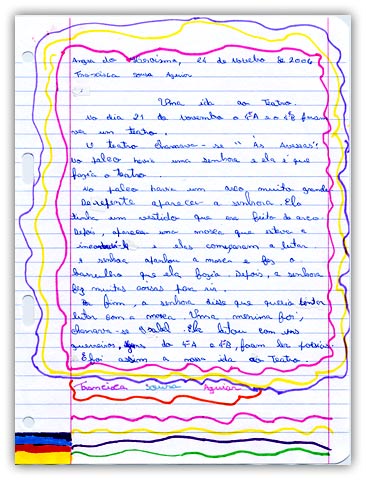 Angra do Heroísmo, 24 de novembro de 2006
Francisca Sousa Aguiar
Uma ida ao Teatro.
No dia 21 de novembro o 4ºA e o 4ºB foram
ver um teatro.
O teatro chamava-se "Às Avessas".
No palco havia uma senhora e ela é que
fazia o teatro.
No palco havia um arco muito grande
De repente apareceu a senhora. Ela
tinha um vestido que era feito do arco.
Depois, apareceu uma mosca que estava a
e eles começaram a lutar.
A senhora apanhou a mosca e fez o
barulho que ela fazia. Depois, a senhora
fez muitas coisas para rir.
No fim, a senhora disse que queria
lutar com a mosca. Uma menina foi,
chamava-se Isabel. Ela lutou com uns
guerreiros, do 4ºA e 4ºB, foram
E foi assim a nossa ida ao Teatro.
Francisca Sousa Aguiar